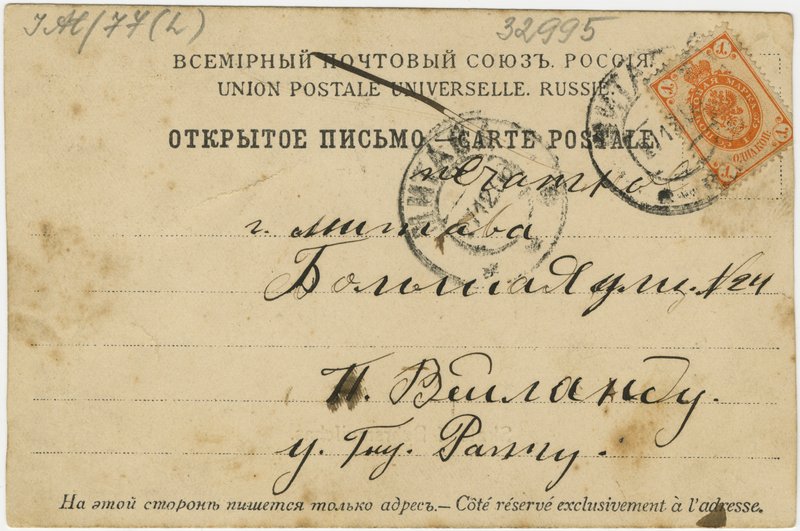 JAH/77(L) 32995
ВСЕМІРНЫЙ ПОЧТОВЫЙ СОЮЗЪ. РОССІЯ.
UNION POSTALE UNIVERSELLE. RUSSIE
ОТКРЫТОЕ ПИСЬМО — CARTE POSTALE
печатное
г. митава
Большая ули. №24
П. Вейланду.
у. Гну.
На этой сторонѣ пишется только адресъ. — Côté réservé exclusivement à l'adresse.